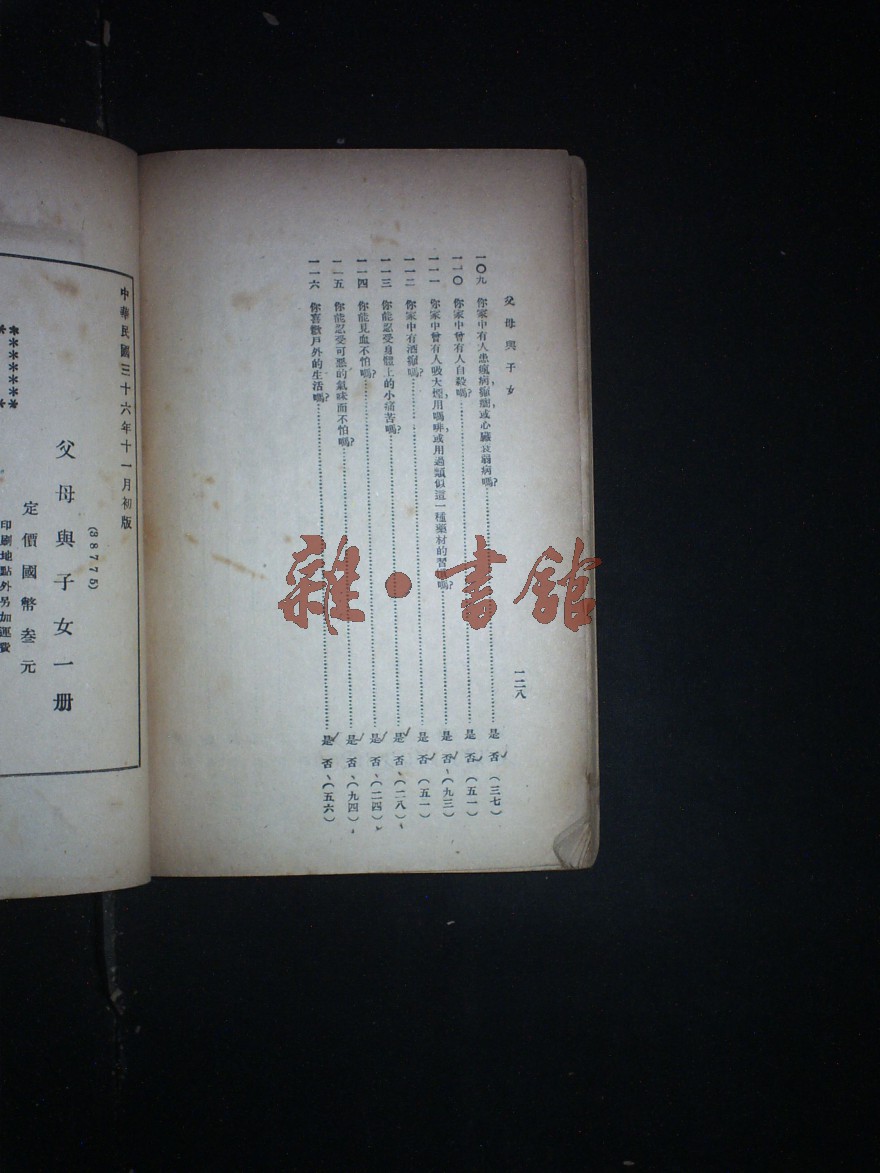 父母與子女
一二八
一〇九 你家中有人患瘋病,癲癇,或心臟衰弱病嗎?……是 否 (三七)
一一〇 你家中曾有人自殺嗎?……是 否 (五一)
一一一 你家中曾有人吸大煙,用嗎啡,或用過類似這一種藥材的習慣嗎?……是 否 (九三)
一一二 你家中有酒癮嗎?……是 否 (五一)
一一三 你能忍受身體上的小痛苦嗎?……是 否 (二八)
一一四 你能見血不怕嗎?……是 否 (二四)
一一五 你能忍受可惡的氣味而不怕嗎?……是 否 (九四)
一一六 你喜歡戶外的生活嗎?……是 否 (五六)
中華民國三十六年十一月初版
(38775)
父母與子女一册
定價國幣叁元
印刷地點外另加運費
雜·書館